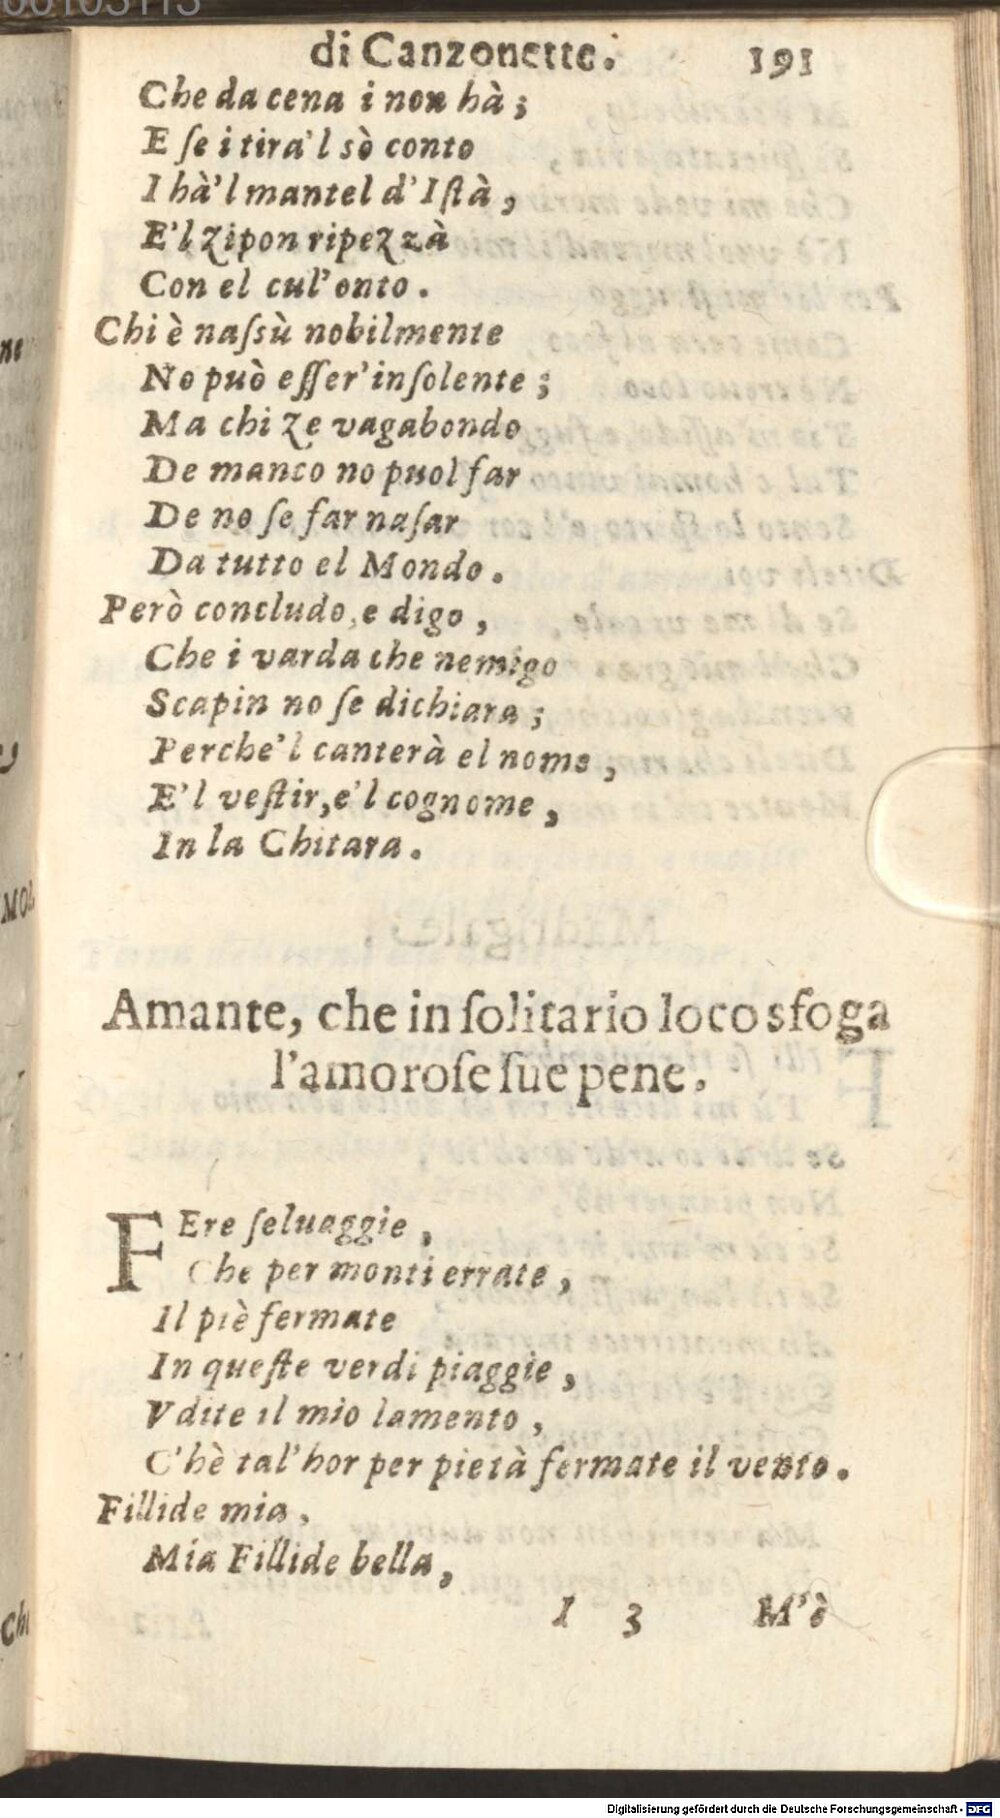 di Canzonette. 191
Che da cena i non hà;
E ſe i tira'l sò conto
I hà'l mantel d'Iſtà,
E'l Zipon ripezzà
Con el cul'onto.
Chi è naſsù nobilmente
No può eſſer'inſolente;
Ma chi Ze vagabondo
De manco no puol far
De no ſe far naſar
Da tutto el Mondo.
Però concludo, e digo,
Che i varda che nemigo
Scapin no ſe dichiara;
Perche'l canterà el nome,
E'l veſtir, e'l cognome,
In la Chitara.
Amante, che in ſolitario loco sfoga
l'amoroſe ſue pene.
FEre ſeluaggie,
Che per monti errate,
Il piè fermate
In queſte verdi piaggie,
Vdite il mio lamento,
C'hè tal'hor per pietà fermate il vento.
Fillide mia,
Mia Fillide bella,
I 3 M'è
Digitalisierung gefördert durch die Deutsche Forschungsgemeinschaft - DFG